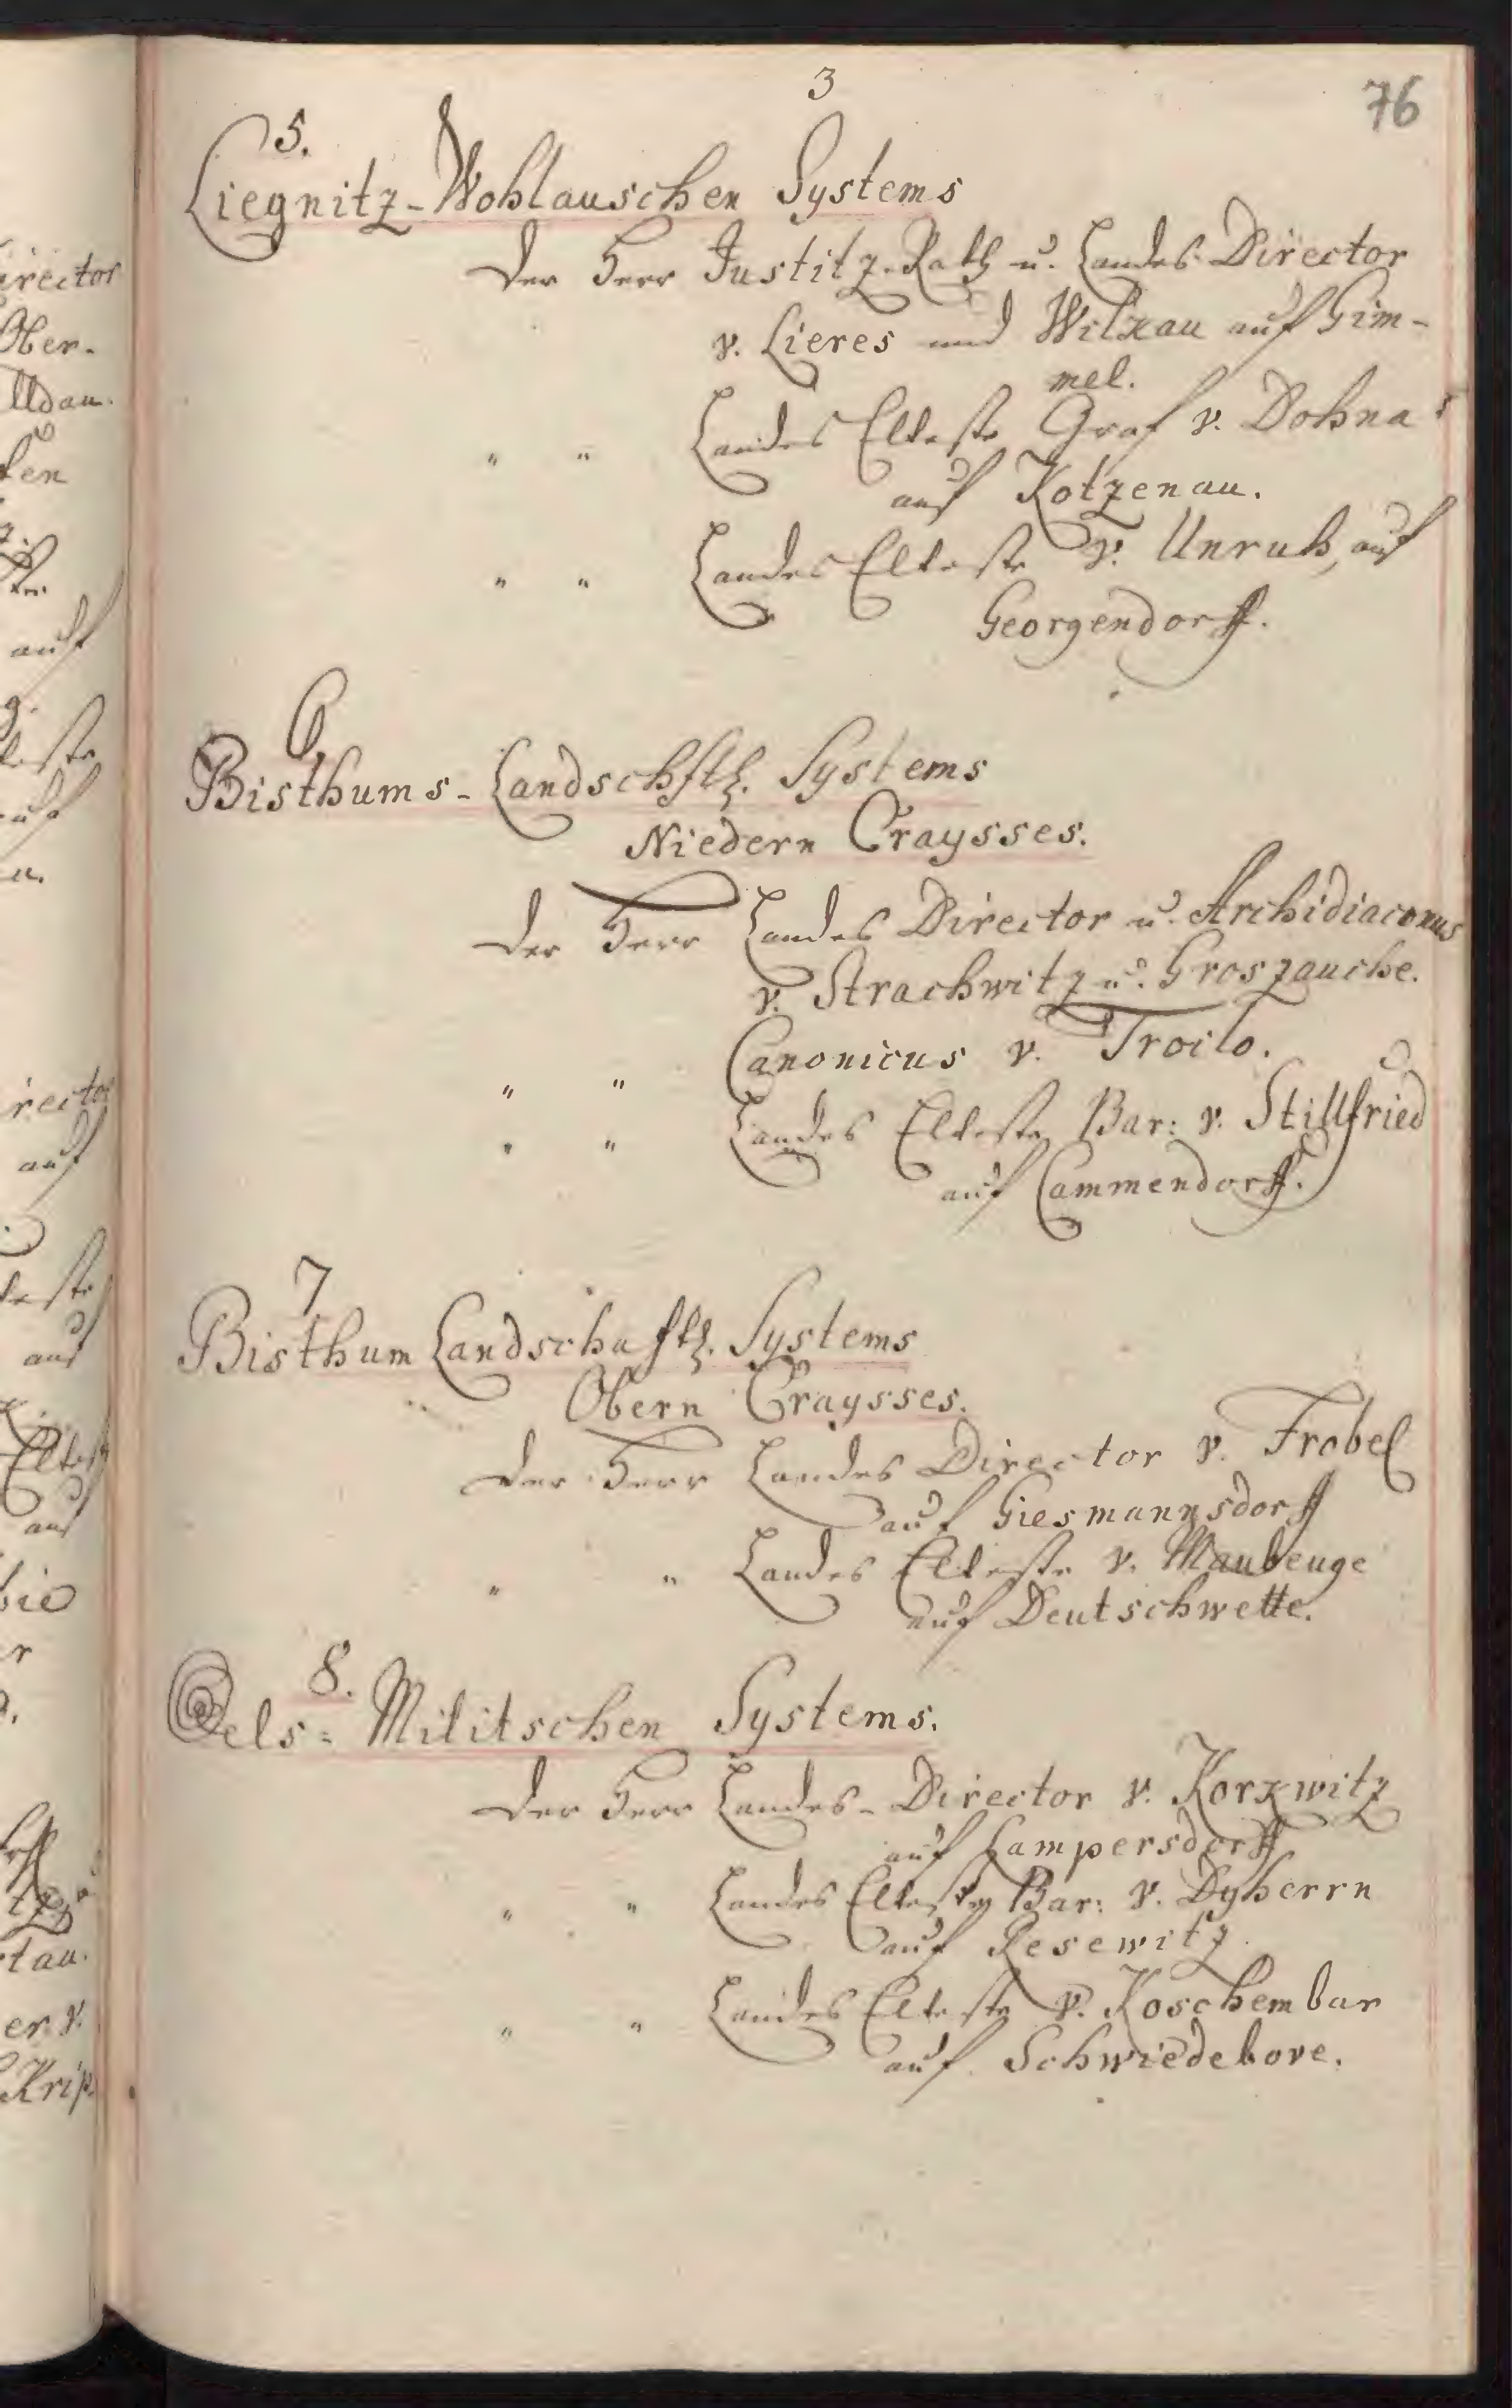 3
76
5.
Liegnitz-Wohlauschen Systems
Der Herr Justitz-Rath u. Landes Director
v. Lieres und Wilkau auf Gim-
mel.
" " Landes Elteste Graf v. Dohna
auf Kotzenau.
" " Landes Elteste v. Unruh, auf
Georgendorff.
6,
Bisthums-Landschftl. Systems
Niedern Craysses.
Der Herr Landes Director u. Archidiaconus
v. Strachwitz u. Groszauche.
" " Canonicus v. Troilo.
" " Landes Elteste Bar: v. Stillfried
auf Cammendorff.
7
Bisthum Landschaftl. Systems
Obern Craysses.
Der Herr Landes Director v. Frobel
auf Giesmannsdorff
" " Landes Elteste v. Maubeuge
auf Deutschwette.
8.
Oels- Militschen Systems.
Der Herr Landes-Director v. Korkwitz
auf Lampersdorff
" " Landes Elteste Bar: v. Dyherrn
auf Resewitz.
" " Landes Elteste v. Koschembar
auf Schwiedebove.
irector
Ober-
lldau.
auf
rector
auf
auf
auf
tau.
er v.